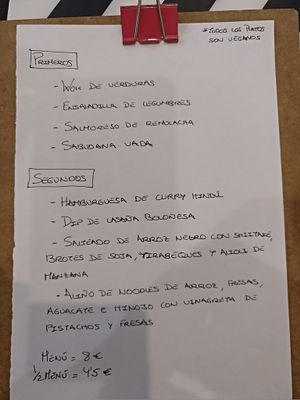 * TODOS LOS PLATOS
SON VEGANOS
PRIMEROS
- WOK DE VERDURAS
- ENSALADILLA DE LEGUMBRES
- SALMOREJO DE REMOLACHA
- SABUDANA VADA
SEGUNDOS
- HAMBURGUESA DE CURRY HINDÚ
- DIP DE LASAÑA BOLOÑESA
- SALTEADO DE ARROZ NEGRO CON SHIITAKE,
BROTES DE SOJA, TIRABEQUES Y ALIOLI DE
MANZANA
- ALIÑO DE NOODLES DE ARROZ, FRESAS,
AGUACATE E HINOJO CON VINAGRETA DE
PISTACHOS Y FRESAS
MENÚ = 8 €
1/2 MENÚ = 4'5 €